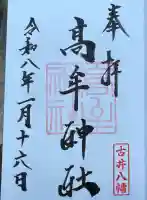 奉拝
高牟神社
古井八幡
令和八年一月十六日